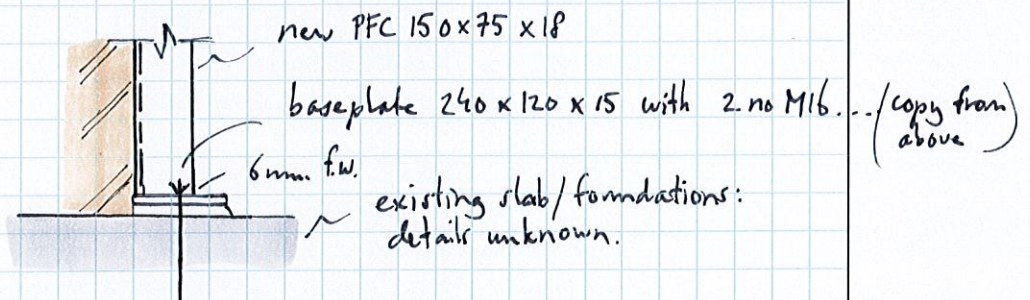 new PFC 150x75x18
baseplate 240x120x15 with 2.no M16... (copy from above)
6mm f.w.
existing slab/foundations:
details unknown.